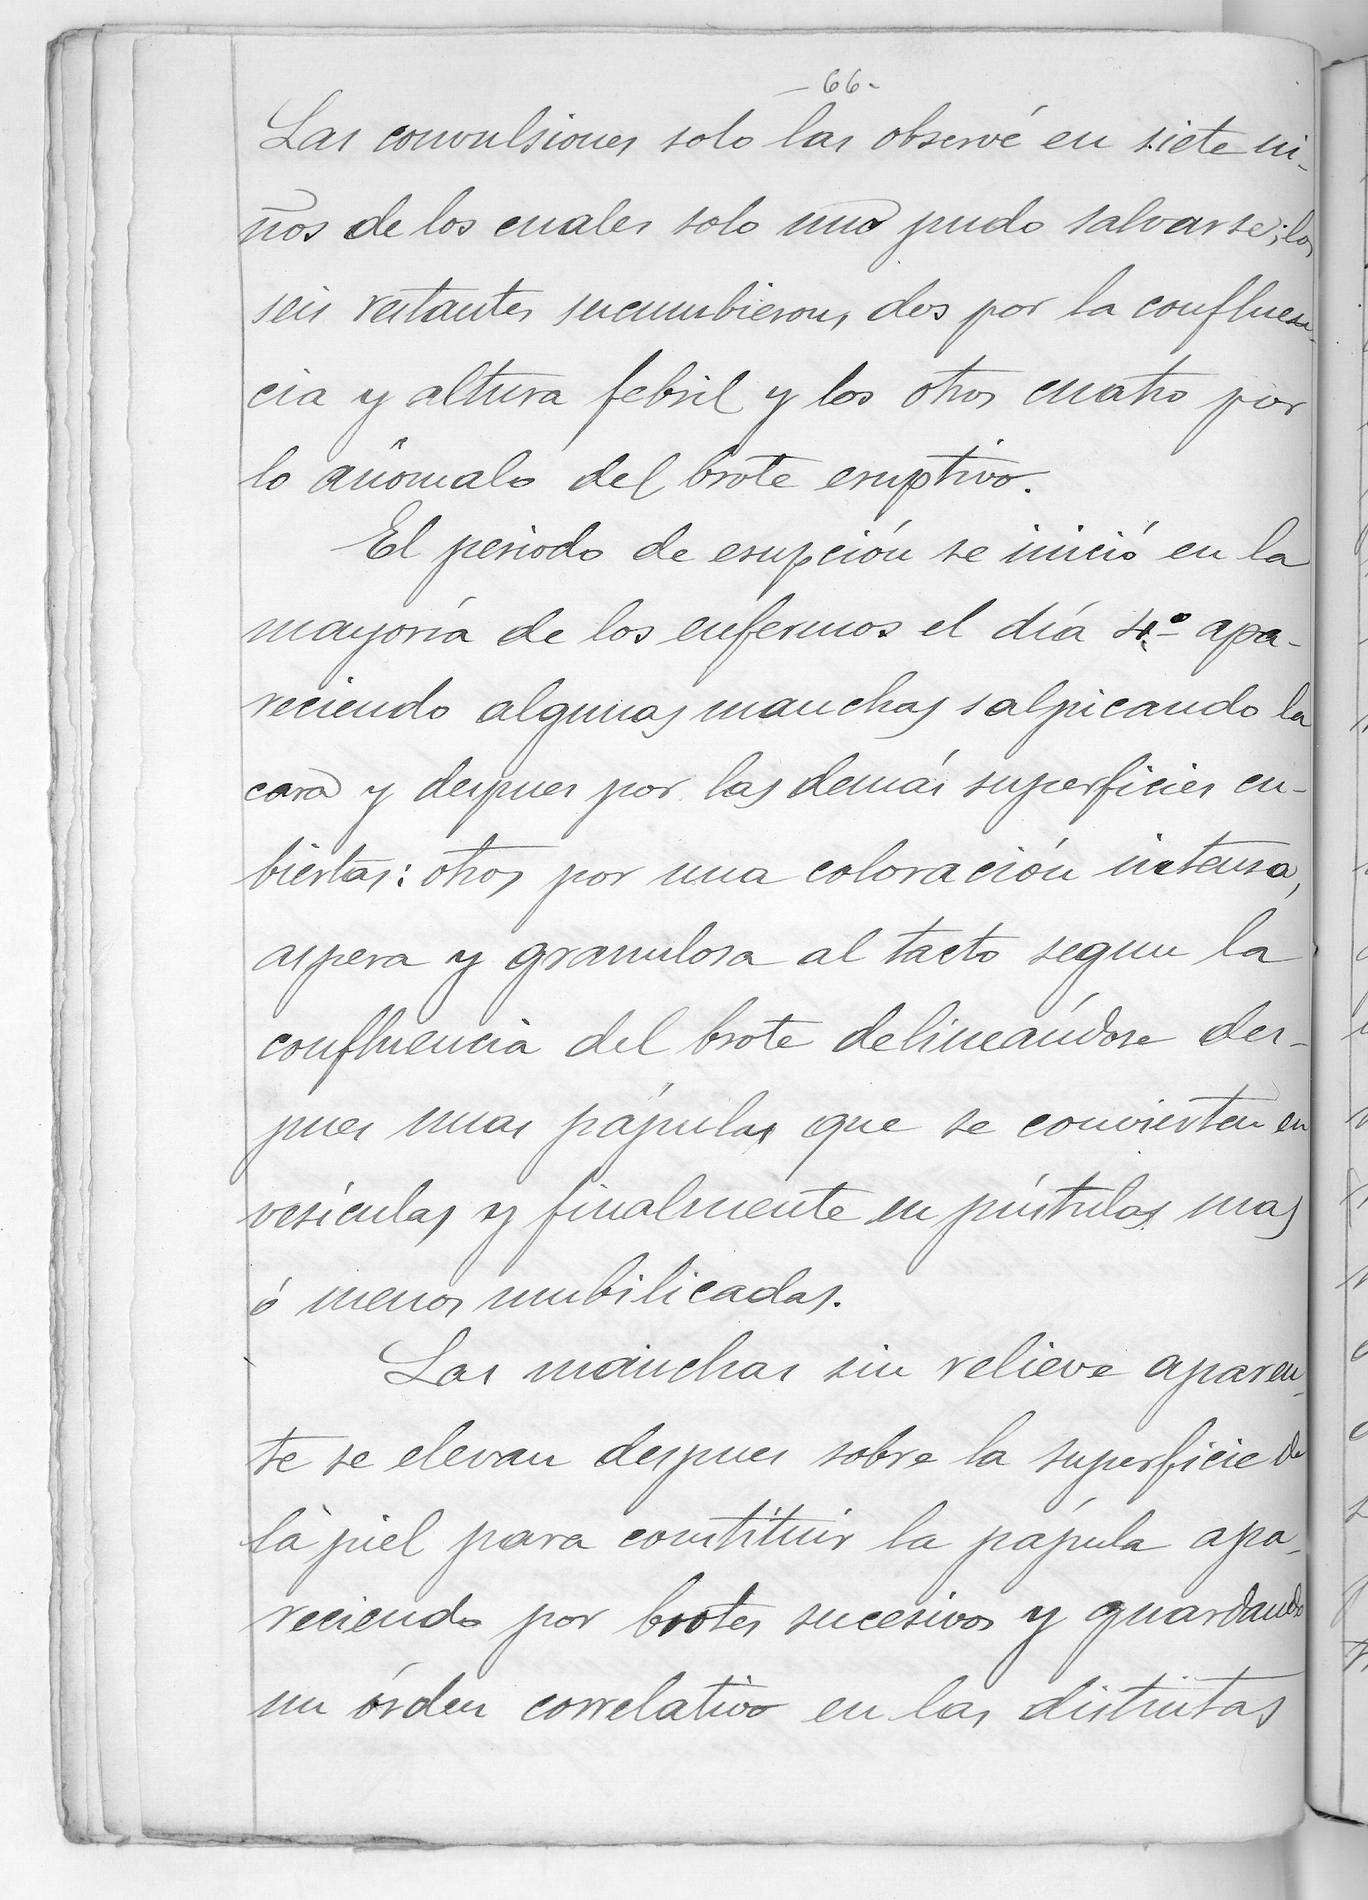 - 66 -
Las convulsiones solo las observé en siete ni-
ños de los cuales solo uno pudo salvarse; los
seis restantes sucumbieron, dos por la confluen-
cia y altura febril y los otros cuatro por
lo anómalo del brote eruptivo.
El periodo de erupción se inició en la
mayoría de los enfermos el día 4º apa-
reciendo algunas manchas salpicando la
cara y despues por las demás superficies cu-
biertas: otros por una coloración intensa,
aspera y granulosa al tacto segun la
confluencia del brote delineándose des-
pues unas pápulas que se convierten en
vesículas y finalmente en pústulas mas
ó menos umbilicadas.
Las manchas sin relieve aparen-
te se elevan despues sobre la superficie de
la piel para constituir la pápula apa-
reciendo por brotes sucesivos y guardando
un órden correlativo en las distintas